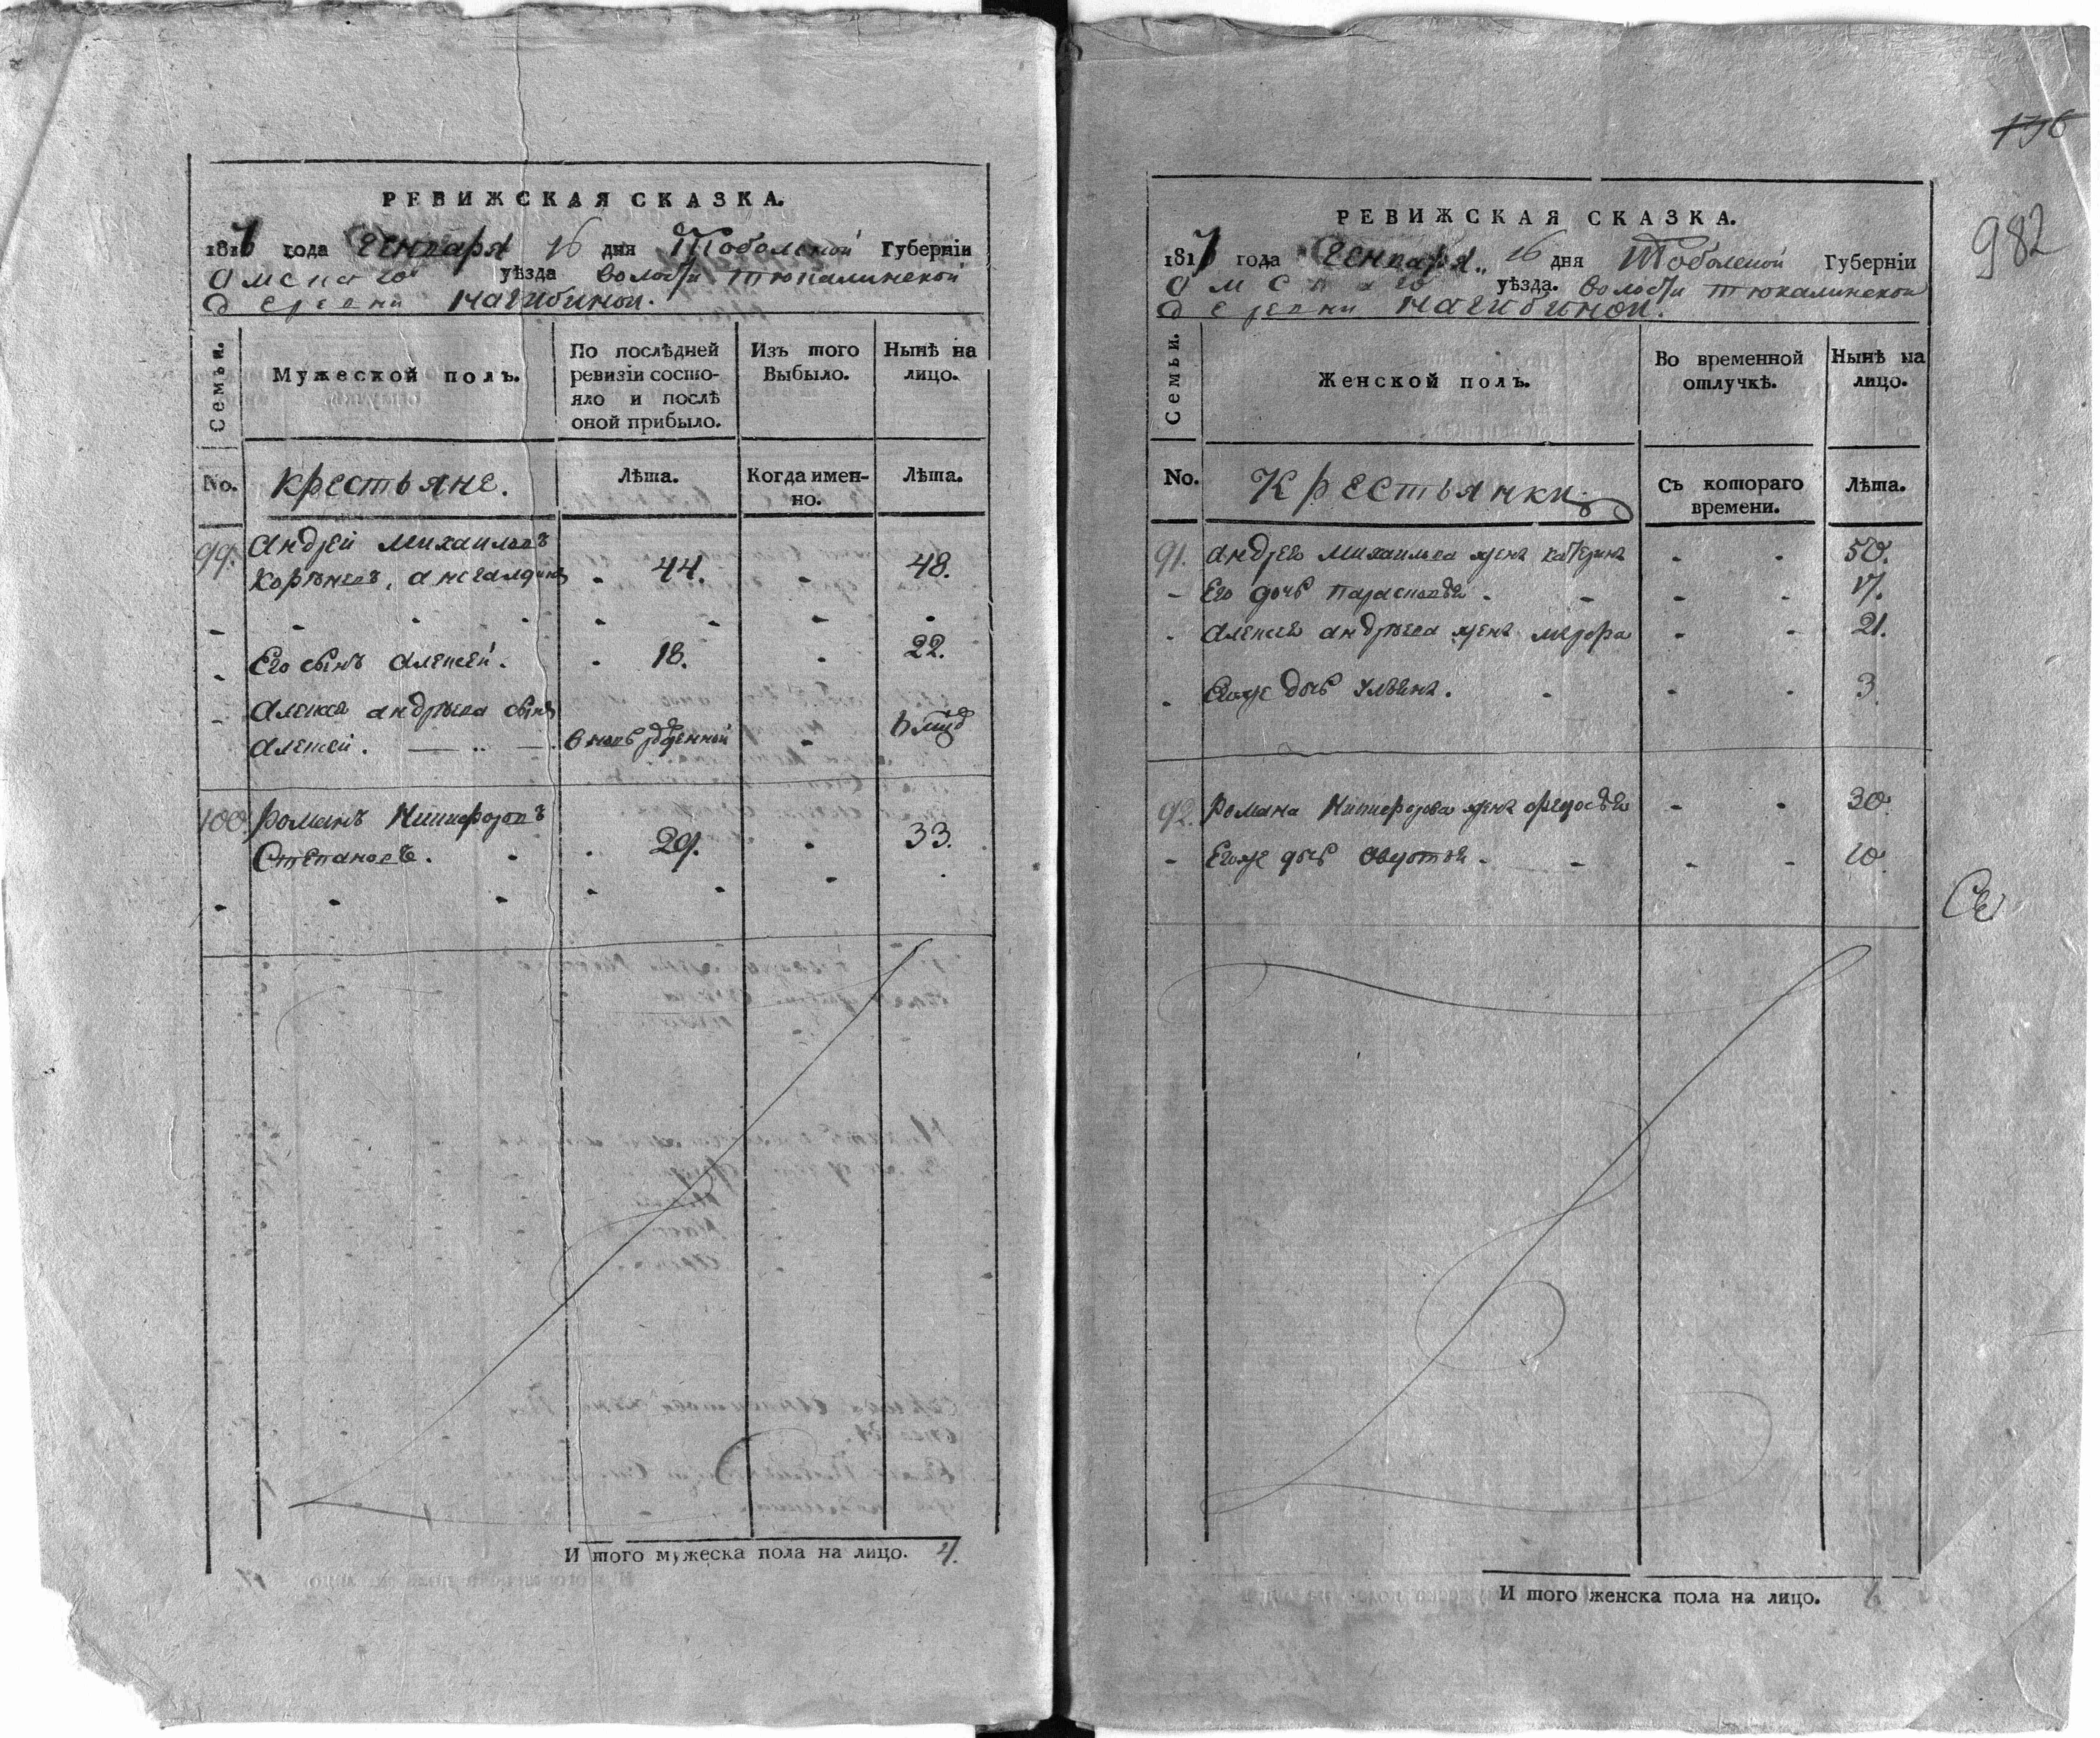 РЕВИЖСКАЯ СКАЗКА.
1817 года Генваря 16 дня Тобольской Губерніи
Омскаго уѣзда волости тюкалинской
деревни нагибиной.
Семьи.
Мужеской полъ.
По послѣдней ревизіи состояло и послѣ оной прибыло.
Изъ того Выбыло.
Нынѣ на лицо.
No.
крестьяне.
Лѣта.
Когда именно.
Лѣта.
99. Андрей михаиловъ
44. 48.
Его сынъ алексей. 18. 22.
алексея андреева сынъ
алексей. вновь рожденной
100. романъ Никифоровъ
Степановъ. 29. 33.
И того мужеска пола на лицо. 4.
176
982
РЕВИЖСКАЯ СКАЗКА.
1817 года Генваря 16 дня Тобольской Губерніи
Омскаго уѣзда. волости тюкалинской
деревни нагибиной.
Семьи.
Женской полъ.
Во временной отлучкѣ.
Нынѣ на лицо.
No.
Крестьянки
Съ котораго времени.
Лѣта.
91. андрея михаилова жена катерина 50.
Его дочь парасковья 17.
алексея андреева жена 21.
Егоже дочь ульяна. 3
92. романа Никифорова жена федосья 30.
Егоже дочь 10.
И того женска пола на лицо. 6.